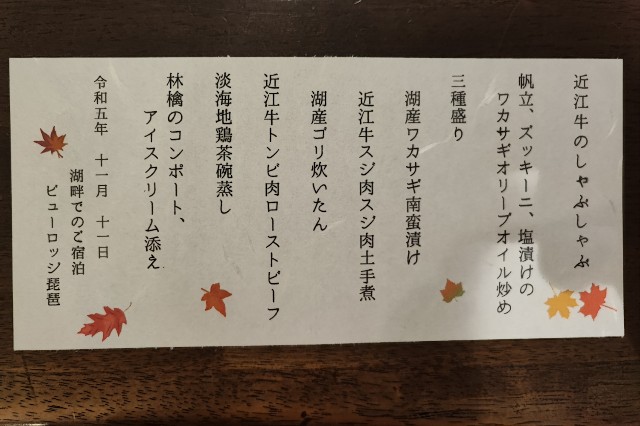 近江牛のしゃぶしゃぶ
帆立、ズッキーニ、塩漬けの
ワカサギオリーブオイル炒め
三種盛り
湖産ワカサギ南蛮漬け
近江牛スジ肉スジ肉土手煮
湖産ゴリ炊いたん
近江牛トンビ肉ローストビーフ
淡海地鶏茶碗蒸し
林檎のコンポート、
アイスクリーム添え
令和五年 十一月 十一日
湖畔でのご宿泊
ビューロッジ琵琶